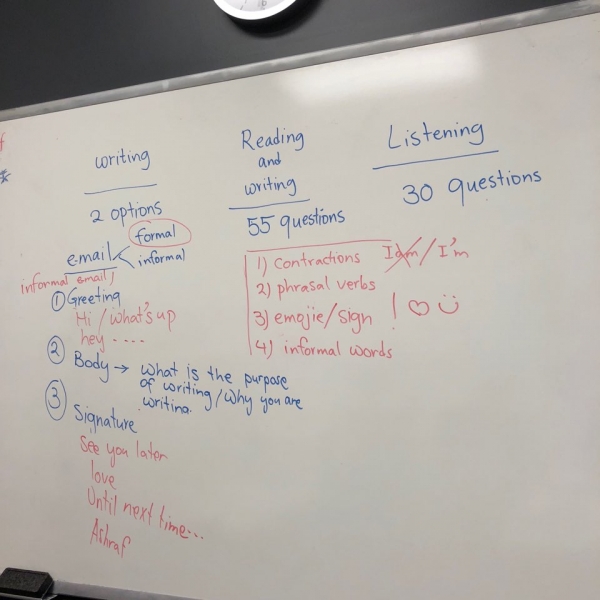 writing
2 options
email
formal
informal
informal email,
① Greeting
Hi / what's up
hey ....
② Body → what is the purpose
of writing / why you are
writing.
③ Signature
See you later
love
Until next time...
Ashraf
Reading
and
writing
55 questions
1) contractions I am / I'm
2) phrasal verbs
3) emojie/sign ! ♡ ☺
4) informal words
Listening
30 questions